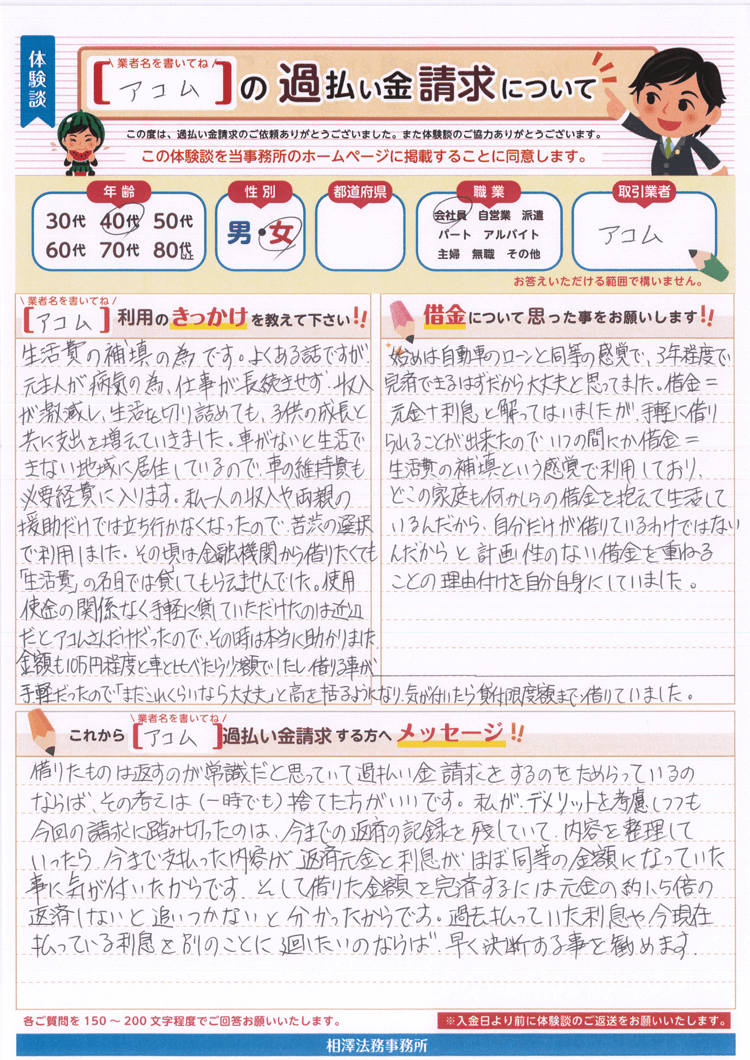 体験談
\ 業者名を書いてね /
[アコム]の過払い金請求について
この度は、過払い金請求のご依頼ありがとうございました。また体験談のご協力ありがとうございます。
この体験談を当事務所のホームページに掲載することに同意します。
年齢
30代 40代 50代
60代 70代 80代以上
性別
男・女
都道府県
職業
会社員 自営業 派遣
パート アルバイト
主婦 無職 その他
取引業者
アコム
お答えいただける範囲で構いません。
\ 業者名を書いてね /
[アコム]利用のきっかけを教えて下さい!!
生活費の補填の為です。よくある話ですが、
元主人が病気の為、仕事が長続きせず収入
が激減し、生活を切り詰めても、子供の成長と
共に支出を増えていきました。車がないと生活で
きない地域に居住しているので、車の維持費も
必要経費に入ります。私一人の収入や両親の
援助だけでは立ち行かなくなったので、苦渋の選択
で利用しました。その頃は金融機関から借りたくても
「生活費」の名目では貸してもらえませんでした。使用
使途の関係なく手軽に貸していただけたのは近辺
だとアコムさんだけだったので、その時は本当に助かりました。
金額も10万円程度と車と比べたら少額でしたし、借りる事が
手軽だったので「まだこれくらいなら大丈夫」と高を括るようになり、気が付いたら貸付限度額まで借りていました。
借金について思った事をお願いします!!
始めは自動車のローンと同等の感覚で、3年程度で
完済できるはずだから大丈夫と思ってました。借金=
元金+利息と解ってはいましたが、手軽に借り
られることが出来たのでいつの間にか借金=
生活費の補填という感覚で利用しており、
どこの家庭も何かしらの借金を抱えて生活して
いるんだから、自分だけが借りているわけではない
んだからと計画性のない借金を重ねる
ことの理由付けを自分自身にしていました。
\ 業者名を書いてね /
これから[アコム]過払い金請求する方へメッセージ!!
借りたものは返すのが常識だと思っていて過払い金請求をするのをためらっているの
ならば、その考えは(一時でも)捨てた方がいいです。私が、デメリットを考慮しつつも
今回の請求に踏み切ったのは、今までの返済の記録を残していて、内容を整理して
いったら、今まで支払った内容が返済元金と利息がほぼ同等の金額になっていた
事に気が付いたからです。そして借りた金額を完済するには元金の約1.5倍の
返済しないと追いつかないと分かったからです。過去払っていた利息や、今現在
払っている利息を別のことに廻したいのならば、早く決断する事を勧めます。
各ご質問を150〜200文字程度でご回答お願いいたします。
※入金日より前に体験談のご返送をお願いいたします。
相澤法務事務所